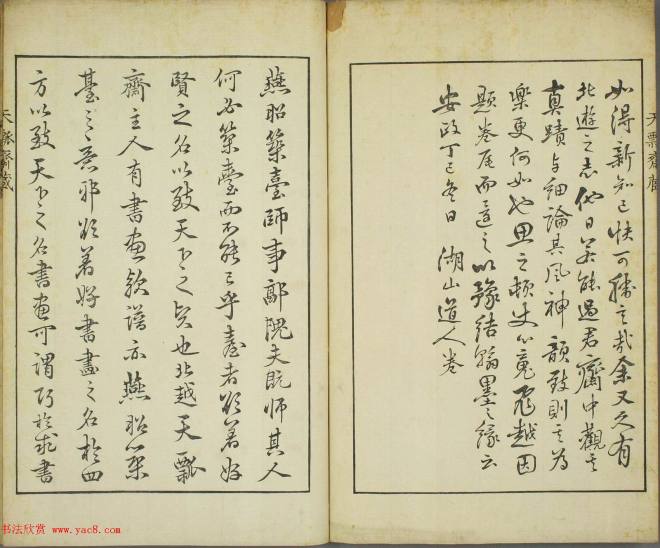 如得新知已快可勝言哉余又久有
北遊之志他日若能過君齋中觀其
真蹟与細論其風神韻致則其為
樂更何如也思之頓史心竟飛越因
題卷尾而道之以豫結翰墨之緣云
安政丁巳冬日 湖山道人卷
天瓢齋藏
燕昭築臺師事郭隗夫既師其人
何必築臺而不能已乎臺者欲著好
賢之名以致天下之賢也北越天瓢
齋主人有書畫款譜亦燕昭築
臺之意耶欲著好書畫之名於四
方以致天下之名書畫可謂巧於求書
天瓢齋藏
书法欣赏 www.yac8.com